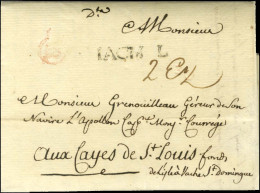 Dte
A Monsieur
JACM L
Monsieur Grenouilleau Géreur de Son
Navire L'Apollon Capne Mony Courrège
Aux Cayes de St. Louis fonds
de l'isle à Vache St. Domingue